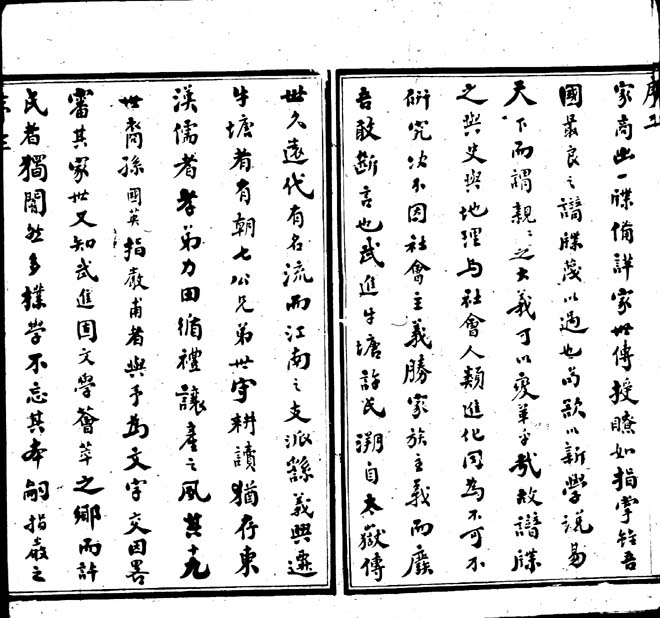 家高出一牒備詳家世傳授瞭如指掌雖吾
國最良之譜牒蔑以過也苟欲以新學說易
天下而謂親親之大義可以變革乎哉故譜牒
之與史與地理与社會人類進化同為不可不
研究决不因社會主義勝家族主義而廢
吾敢斷言也武進牛塘許氏溯自太嶽傳
世久遠代有名流而江南之支派繇義興遷
牛塘者有朝七公兄弟世守耕讀猶存東
漢儒者孝弟力田循禮讓產之風其十九
世裔孫國英指嚴甫者與予為文字交因畧
審其家世又知武進固文學薈萃之鄉而許
氏者獨闇然多樸學不忘其本嗣指嚴之